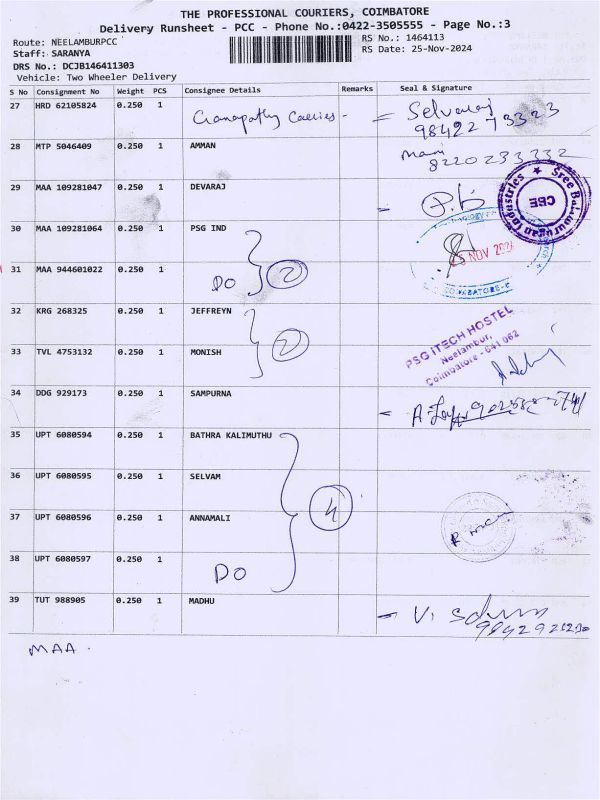 THE PROFESSIONAL COURIERS, COIMBATORE
Delivery Runsheet - PCC - Phone No.:0422-3505555 - Page No.:3
Route: NEELAMBURPCC
RS No.: 1464113
Staff: SARANYA
RS Date: 25-Nov-2024
DRS No.: DCJB146411303
Vehicle: Two Wheeler Delivery
S No Consignment No Weight PCS Consignee Details Remarks Seal & Signature
27 HRD 62105824 0.250 1 Ganapathy Caeries - = Selvaraj
98422 73323
28 MTP 5046409 0.250 1 AMMAN mani
8220233232
29 MAA 109281047 0.250 1 DEVARAJ
Industries ★ Sree Balmurugan
CBE
30 MAA 109281064 0.250 1 PSG IND
NOV 202
31 MAA 944601022 0.250 1 DO 2
COIMBATORE
32 KRG 268325 0.250 1 JEFFREYN
PSG iTECH HOSTEL
Neelambur,
Coimbatore - 641 062
33 TVL 4753132 0.250 1 MONISH 2
34 DDG 929173 0.250 1 SAMPURNA
35 UPT 6080594 0.250 1 BATHRA KALIMUTHU
36 UPT 6080595 0.250 1 SELVAM
37 UPT 6080596 0.250 1 ANNAMALI 4
38 UPT 6080597 0.250 1 DO
39 TUT 988905 0.250 1 MADHU
MAA .